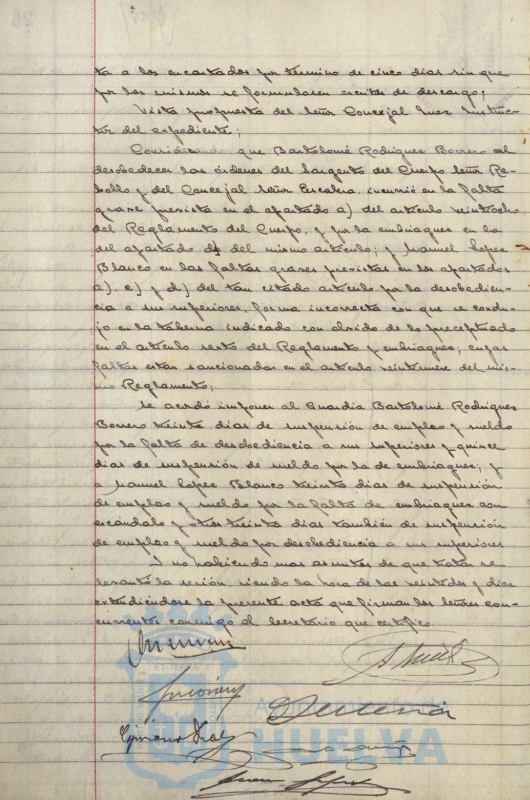 ta a los encartados por término de cinco dias sin que
por los mismos se formularon escritos de descargo;
Vista propuesta del Señor Concejal Juez Instruc-
tor del expediente;
Considerando que Bartolomé Rodriguez Borrero al
desobedecer las órdenes del Sargento del Cuerpo Señor Re-
bollo y del Concejal Señor Escalera, incurrió en la falta
grave prevista en el apartado a) del artículo veintiocho
del Reglamento del Cuerpo, y por la embriaguez en la
del apartado d) del mismo artículo; y Manuel Lopez
Blanco en las faltas graves previstas en los apartados
a), c) y d) del tan citado artículo por la desobedien-
cia a sus superiores, forma incorrecta con que se condu-
jo en la taberna indicado con olvido de lo preceptuado
en el artículo sexto del Reglamento y embriaguez; cuyas
faltas están sancionadas en el artículo veintinueve del mis-
mo Reglamento;
se acordó imponer al Guardia Bartolomé Rodriguez
Borrero treinta dias de suspensión de empleo y sueldo
por la falta de desobediencia a sus superiores y quince
dias de suspensión de sueldo por la de embriaguez; y
a Manuel Lopez Blanco treinta dias de suspensión
de empleo y sueldo por la falta de embriaguez con
escándalo y otros treinta dias también de suspensión
de empleo y sueldo por desobediencia a sus superiores
Y no habiendo mas asuntos de que tratar se
levantó la sesión, siendo la hora de las veintidos y diez
extendiéndose la presente acta que firman los señores con-
currentes conmigo el Secretario que certifico.
HUELVA